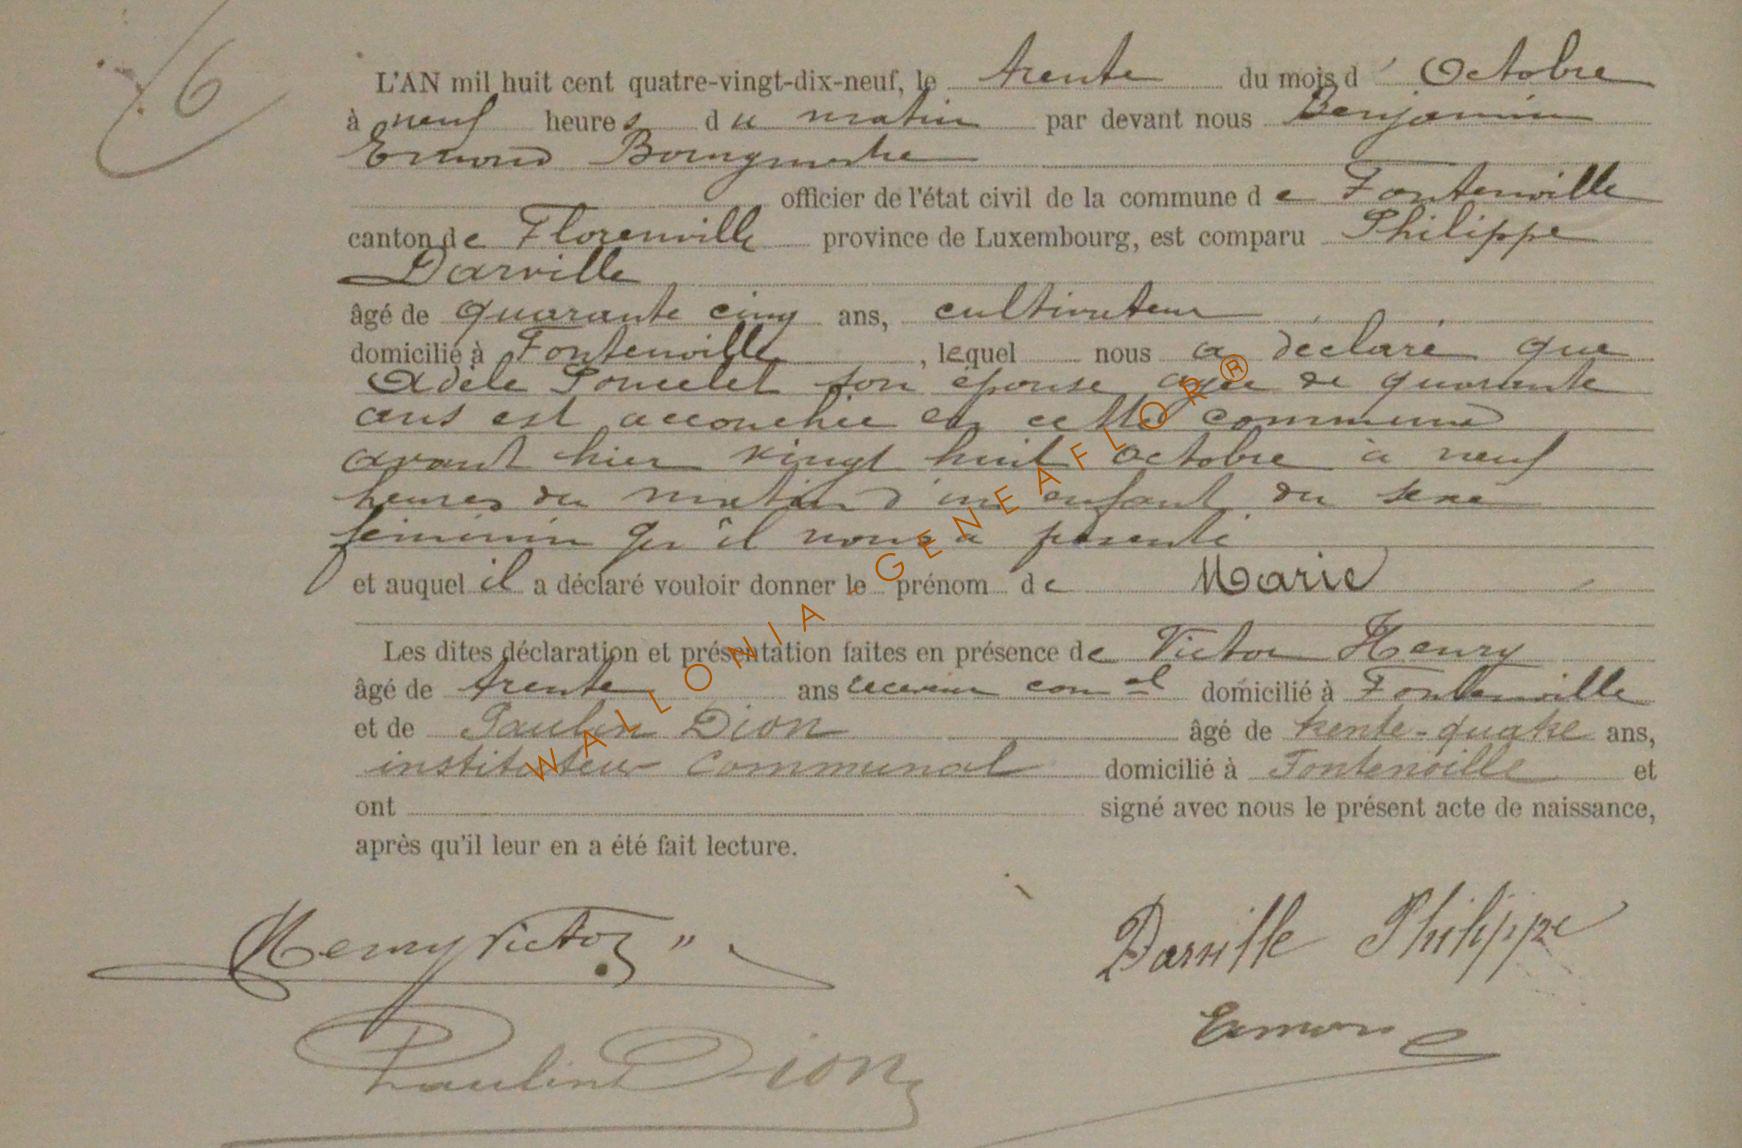 6
L'AN mil huit cent quatre-vingt-dix-neuf, le trente du mois d' Octobre
à neuf heures du matin par devant nous Benjamin
Ermond Bourgmestre
officier de l'état civil de la commune de Fontenoille
canton de Florenville province de Luxembourg, est comparu Philippe
Darville
âgé de quarante cinq ans, cultivateur
domicilié à Fontenoille, lequel nous a déclaré que
Adèle Poncelet son épouse agée de quarante
ans est accouchée en cette commune
avant hier vingt huit octobre à neuf
heures du matin d'un enfant du sexe
féminin qu'il nous a présenté
et auquel il a déclaré vouloir donner le prénom de Marie
Les dites déclaration et présentation faites en présence de Victor Henry
âgé de trente ans receveur com al domicilié à Fontenoille
et de Paulin Dion âgé de trente-quatre ans,
instituteur communal domicilié à Fontenoille et
ont signé avec nous le présent acte de naissance,
après qu'il leur en a été fait lecture.
Henry Victor
Darville Philippe
Ermond
Paulin Dion
WALLONIA - GENEAFLOR®